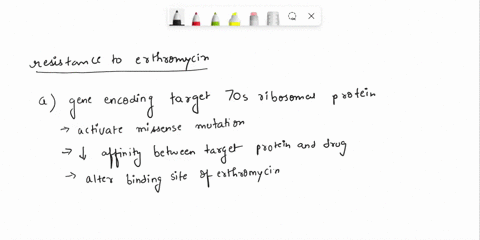 resistance to erthromycin
a) gene encoding target 70s ribosomal protein
→ activate missense mutation
→ ↓ affinity between target protein and drug
→ alter binding site of erthromycin